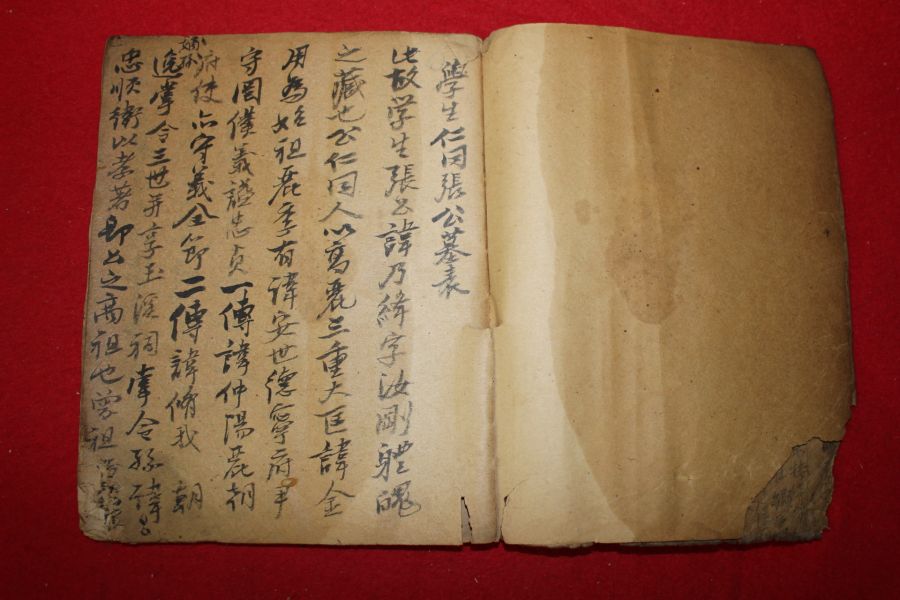 學生仁同張公墓表
此故学生張公諱乃緯字汝剛體魄
之藏也公仁同人以高麗三重大匡諱金
用為始祖麗季有諱安世德寧府尹
守罔僕義諡忠貞一傳諱仲陽麗朝
府使亦守義全節二傳諱脩我 朝
進掌令三世并享玉溪祠掌令孫諱
嫡孫
忠順衛以孝著即公之高祖也曾祖